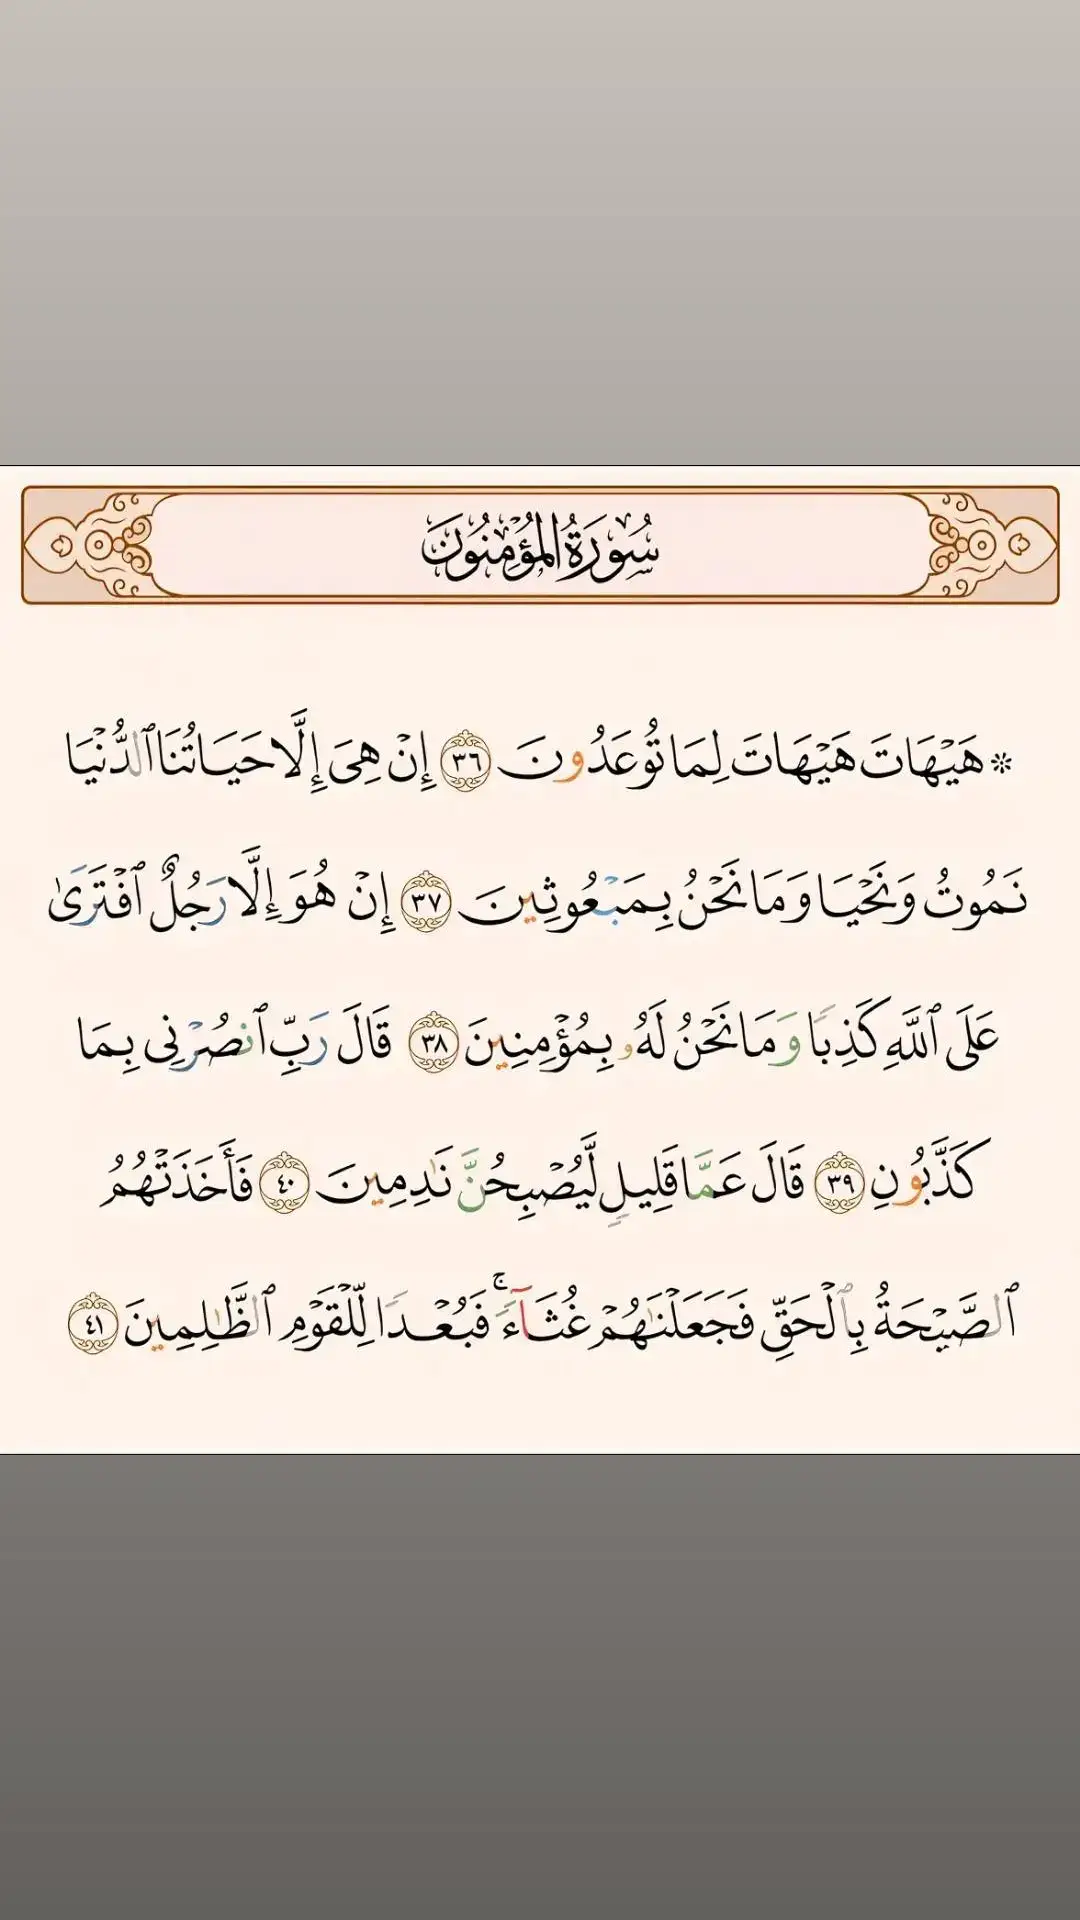 سُورَةُ الْمُؤْمِنُونَ
۞ هَيْهَاتَ هَيْهَاتَ لِمَا تُوعَدُونَ ٣٦ إِنْ هِىَ إِلَّا حَيَاتُنَا ٱلدُّنْيَا
نَمُوتُ وَنَحْيَا وَمَا نَحْنُ بِمَبْعُوثِينَ ٣٧ إِنْ هُوَ إِلَّا رَجُلٌ ٱفْتَرَىٰ
عَلَى ٱللَّهِ كَذِبًا وَمَا نَحْنُ لَهُۥ بِمُؤْمِنِينَ ٣٨ قَالَ رَبِّ ٱنصُرْنِى بِمَا
كَذَّبُونِ ٣٩ قَالَ عَمَّا قَلِيلٍ لَّيُصْبِحُنَّ نَـٰدِمِينَ ٤٠ فَأَخَذَتْهُمُ
ٱلصَّيْحَةُ بِٱلْحَقِّ فَجَعَلْنَـٰهُمْ غُثَآءً ۚ فَبُعْدًا لِّلْقَوْمِ ٱلظَّـٰلِمِينَ ٤١